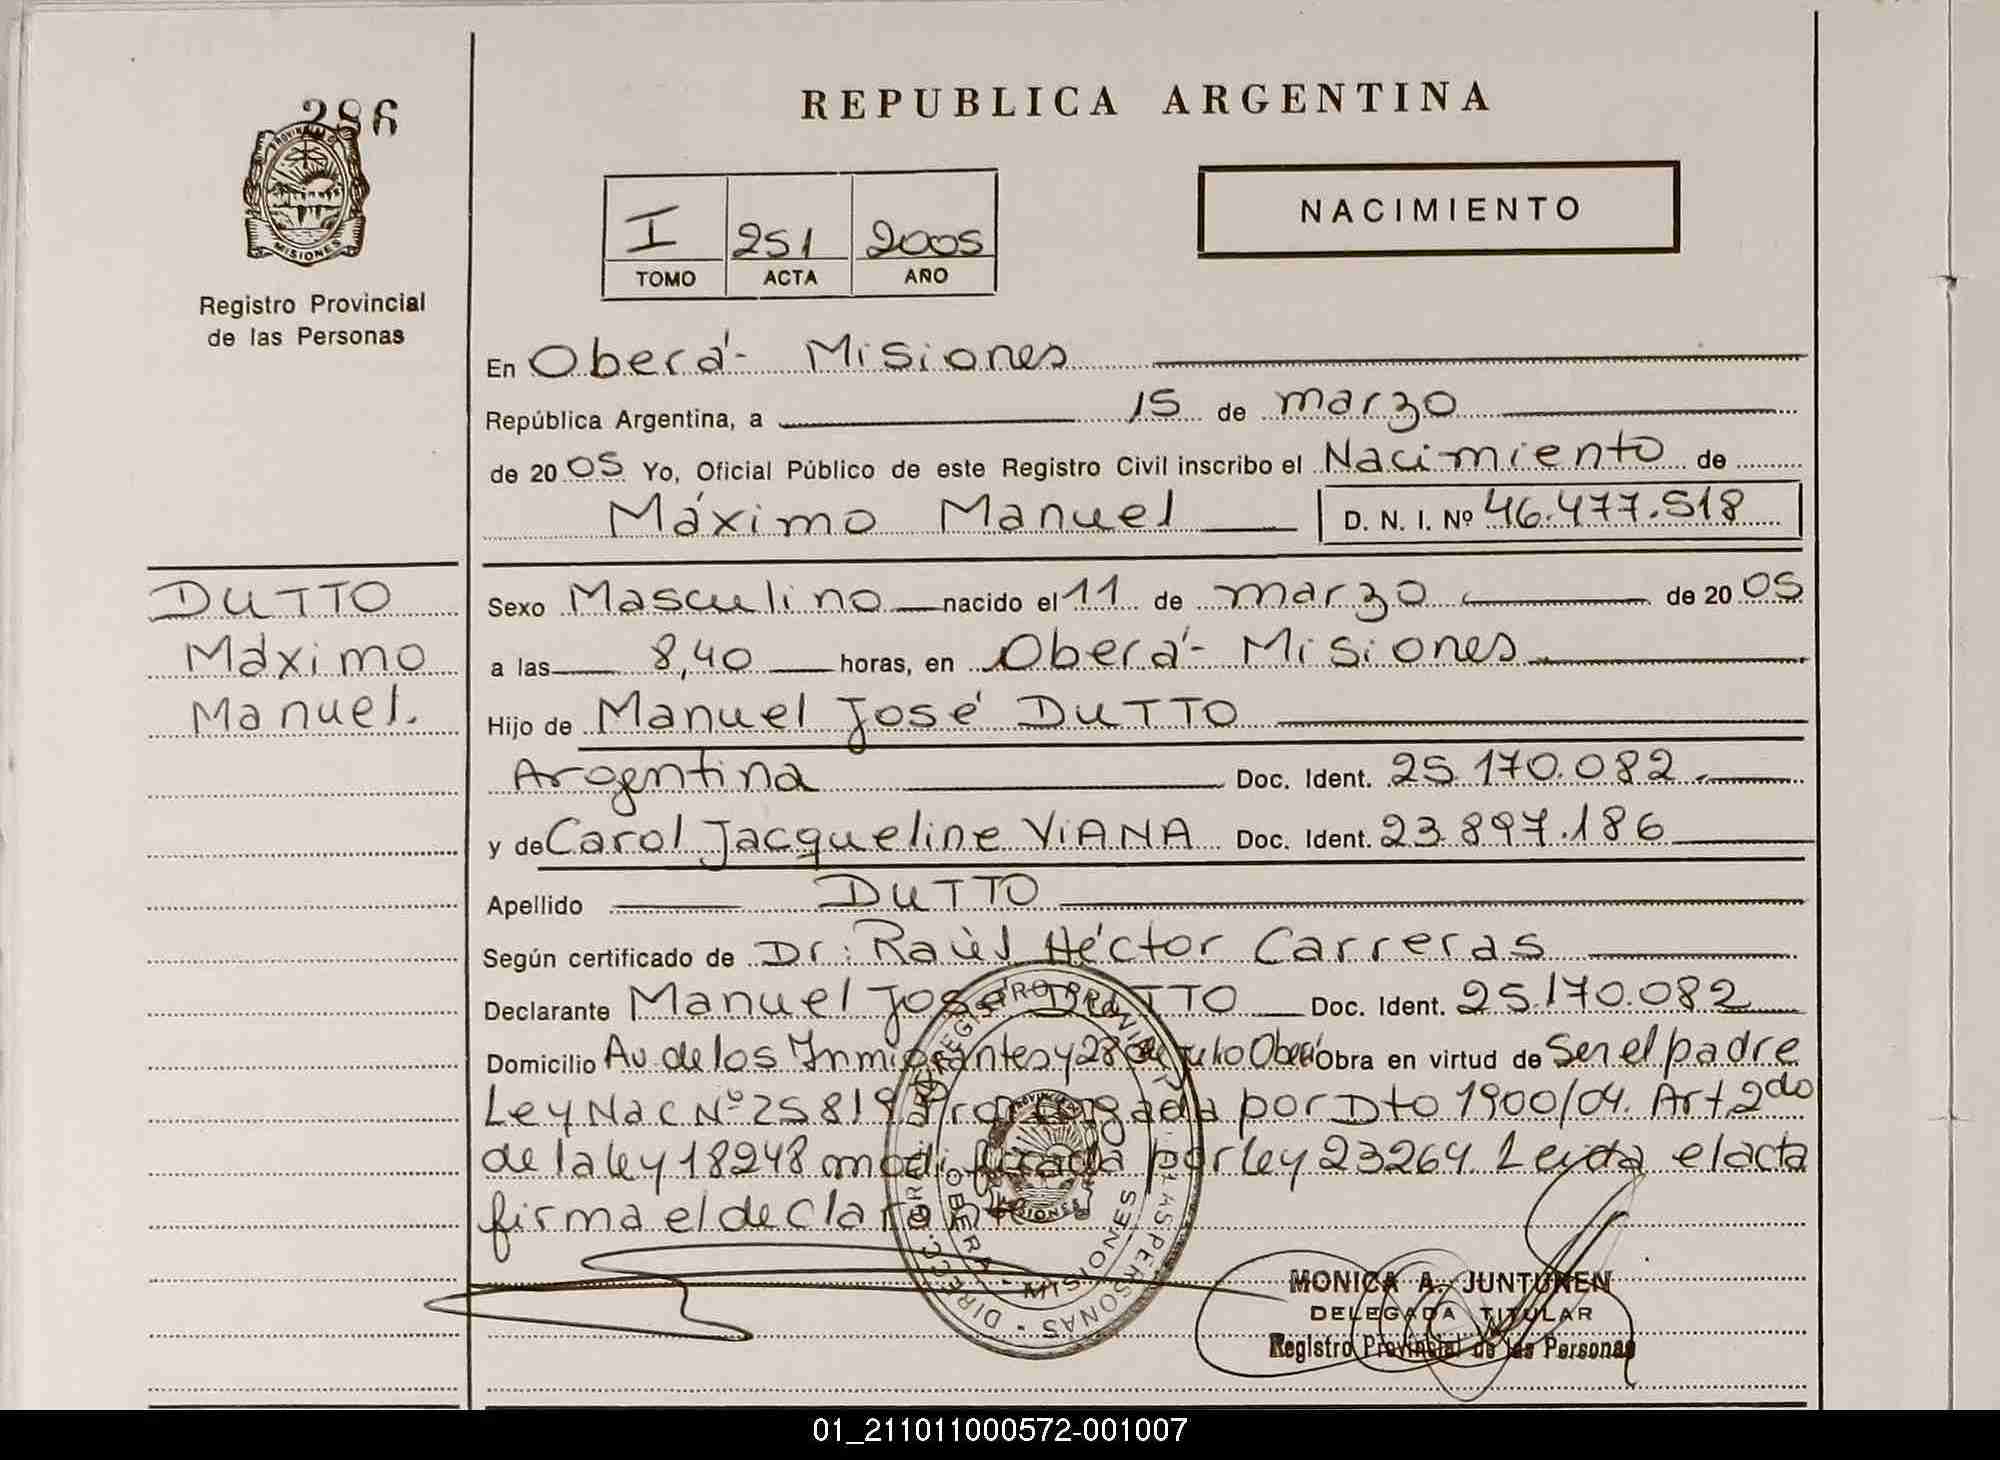 286
PROVINCIA DE
MISIONES
Registro Provincial
de las Personas
DUTTO
Máximo
Manuel.
REPUBLICA ARGENTINA
I 251 2005
TOMO ACTA AÑO
NACIMIENTO
En Oberá - Misiones
República Argentina, a 15 de marzo
de 2005 Yo, Oficial Público de este Registro Civil inscribo el Nacimiento de
Máximo Manuel D. N. I. Nº 46.477.518
Sexo Masculino nacido el 11 de marzo de 2005
a las 8,40 horas, en Oberá - Misiones
Hijo de Manuel José DUTTO
Argentina Doc. Ident. 25.170.082
y de Carol Jacqueline VIANA Doc. Ident. 23.897.186
Apellido DUTTO
Según certificado de Dr: Raúl Héctor Carreras
Declarante Manuel José DUTTO Doc. Ident. 25.170.082
Domicilio Av. de los Inmigrantes y 28 de julio Oberá obra en virtud de Ser el padre
Ley Nac Nº 25819 Prorrogada por Dto 1900/04. Art 2do
de la ley 18248 modificada por ley 23264 Leida el acta
firma el declarante
REGISTRO PROVINCIAL DE LAS PERSONAS
OBERA - MISIONES
MONICA A. JUNTUNEN
DELEGADA TITULAR
Registro Provincial de las Personas
01_211011000572-001007